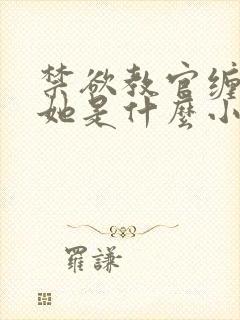 禁欲教官缠
她是什麼小
羅謙